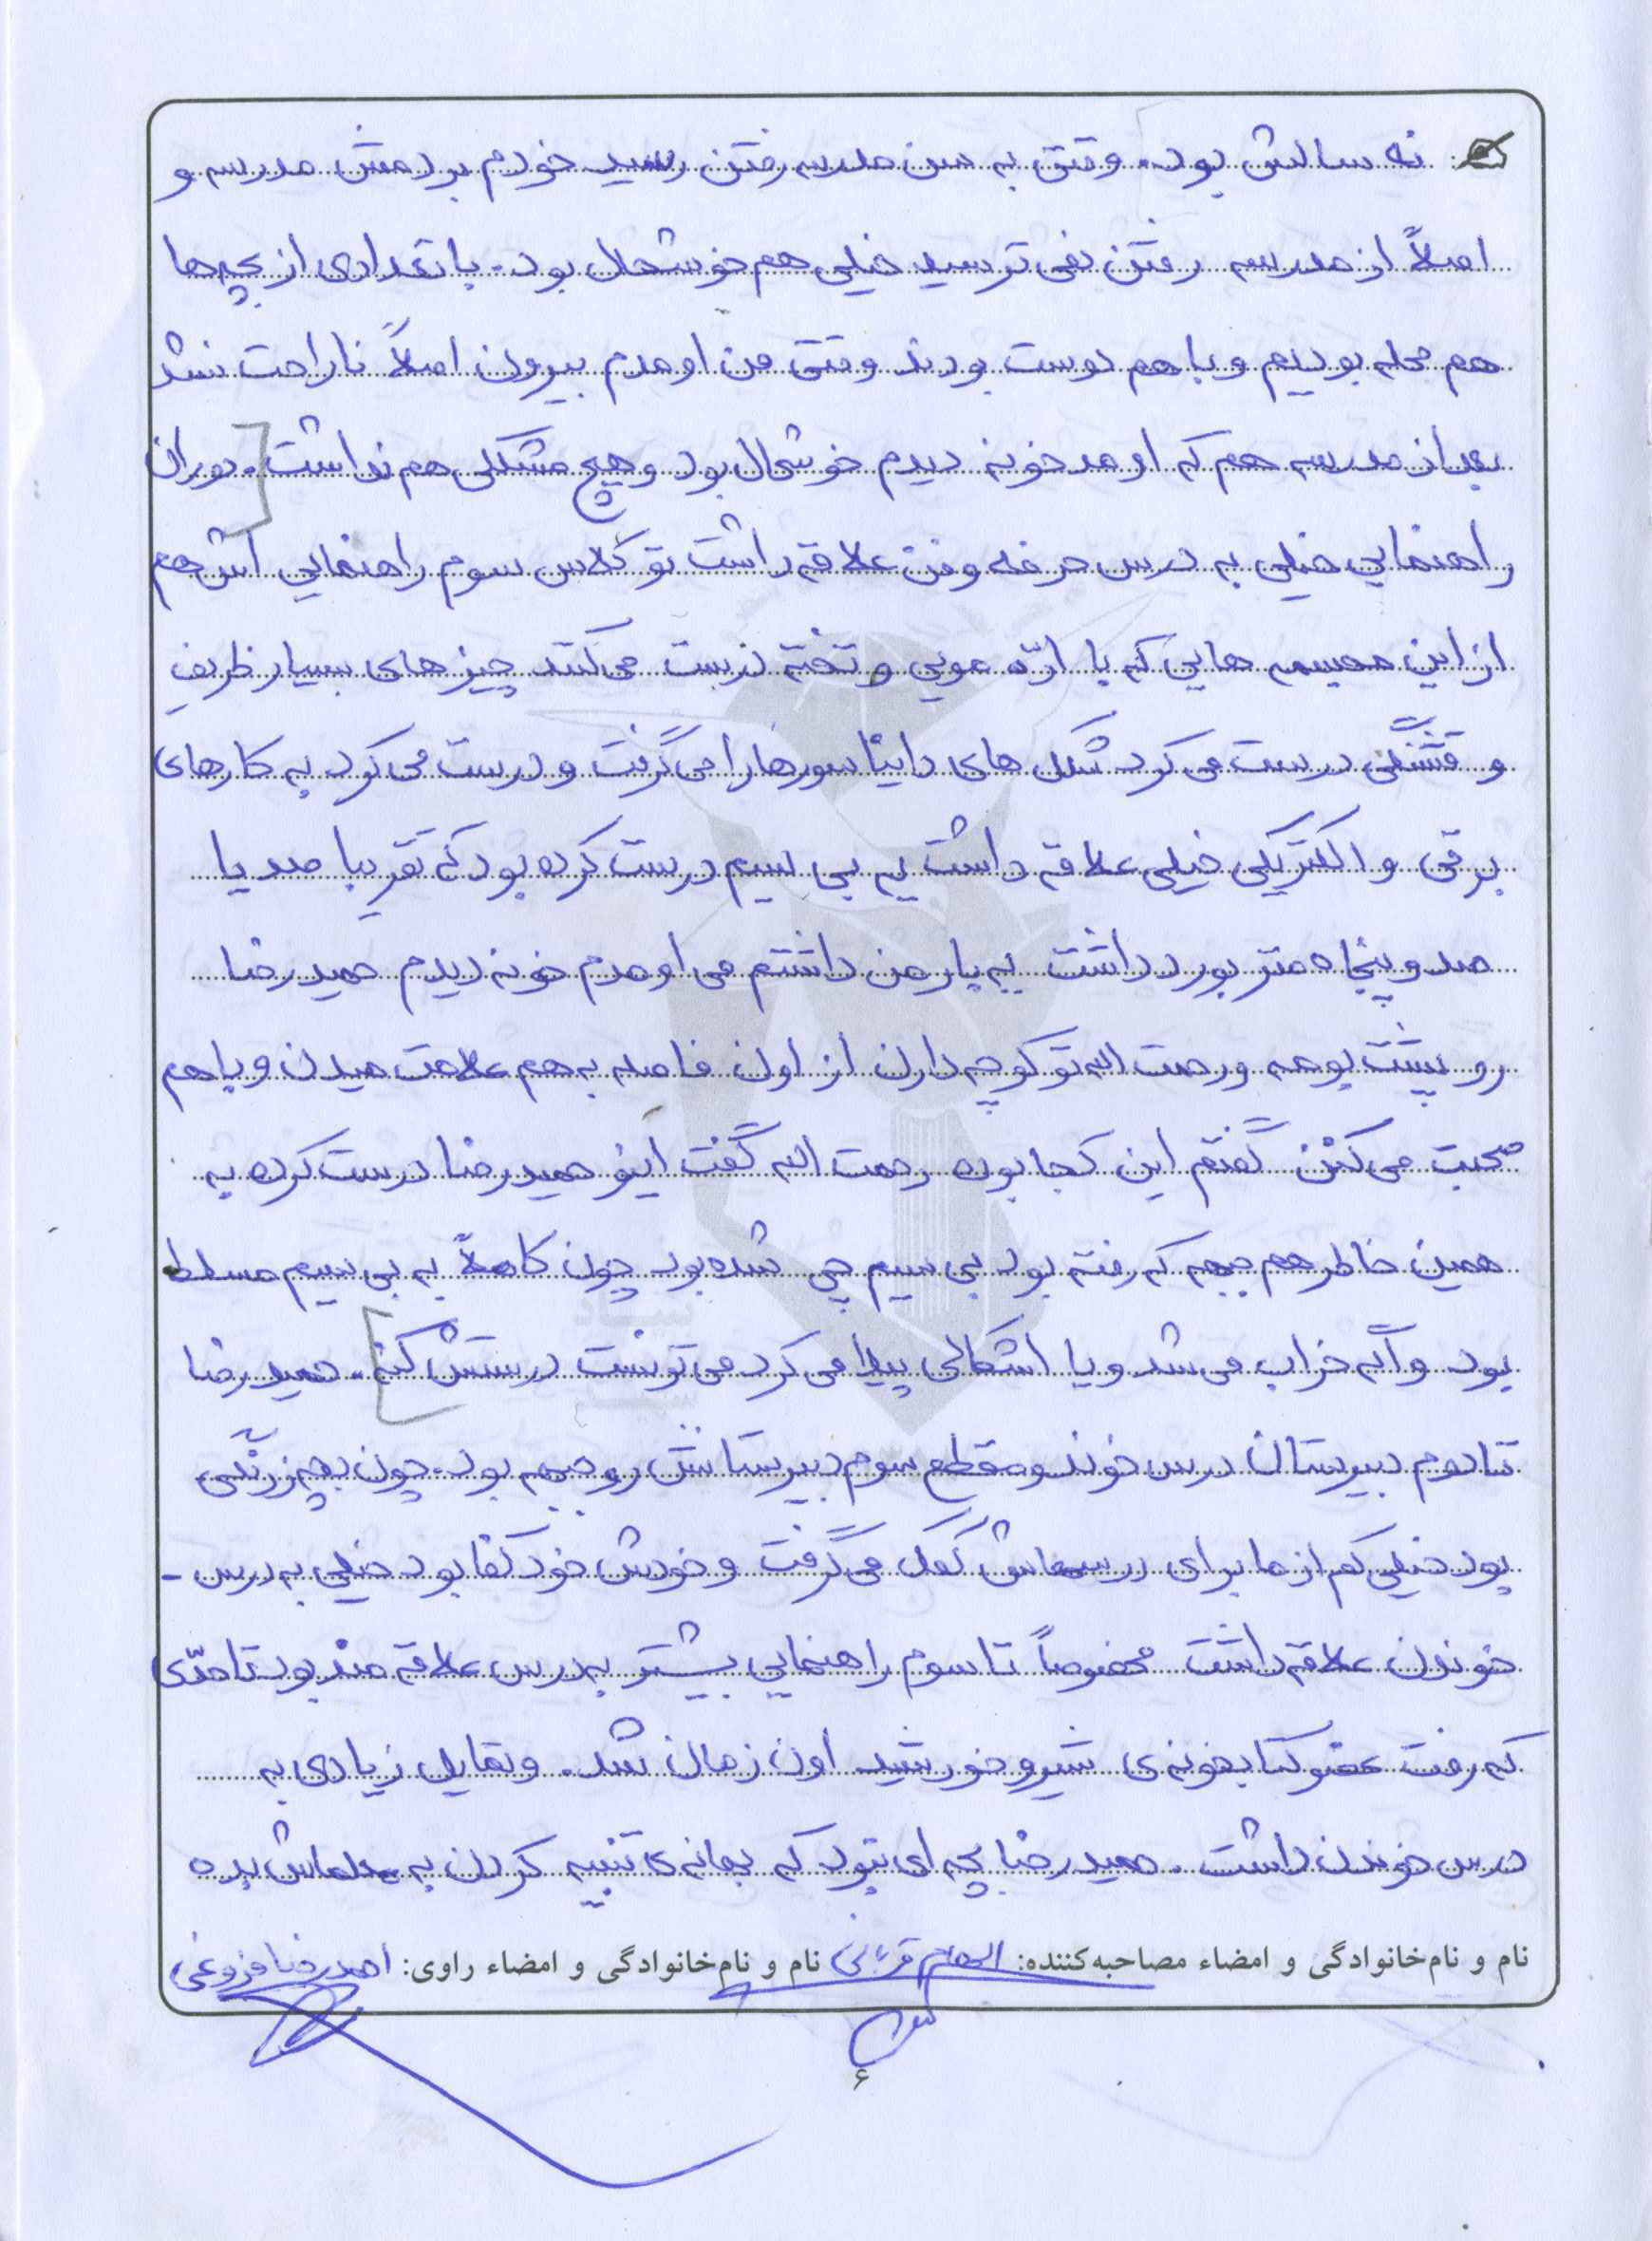 نه سالش بود. وقتی به سن مدرسه رفتن رسید خودم بردمش مدرسه و
اصلاً از مدرسه رفتن نمی ترسید خیلی هم خوشحال بود. با تعدادی از بچه ها
هم محله بودیم و با هم دوست بودند وقتی من اومدم بیرون اصلاً ناراحت نشد
بعد از مدرسه هم که اومد خونه دیدم خوشحال بود و هیچ مشکلی هم نداشت. دوران
راهنمایی خیلی به درس حرفه و فن علاقه داشت تو کلاس سوم راهنمایی اش هم
از این مجسمه هایی که با ارّه مویی و تخته درست می کنند چیزهای بسیار ظریف
و قشنگی درست می کرد شکل های دایناسورها را می گرفت و درست می کرد به کارهای
برقی و الکتریکی خیلی علاقه داشت یه بی سیم درست کرده بود که تقریبا صد یا
صد و پنجاه متر بورد داشت یه بار من داشتم می اومدم خونه دیدم حمیدرضا
رو پشت بومه و رحمت الله تو کوچه دارن از اون فاصله به هم علامت میدن و با هم
صحبت می کنن گفتم این کجا بوده رحمت الله گفت اینو حمیدرضا درست کرده به
همین خاطر هم جبهه که رفته بود بی سیم چی شده بود چون کاملاً به بی سیم مسلط
بود و اگه خراب می شد و یا اشکالی پیدا می کرد می تونست درستش کنه. حمیدرضا
تا دوم دبیرستان درس خوند و مقطع سوم دبیرستانش رو جبهه بود. چون بچه زرنگی
بود خیلی کم از ما برای درسهاش کمک می گرفت و خودش خودکفا بود خیلی به درس -
خوندن علاقه داشت مخصوصاً تا سوم راهنمایی بیشتر به درس علاقه مند بود تا حدّی
که رفت عضو کتابخونه ی شیر و خورشید اون زمان شد. و تمایل زیادی به
درس خوندن داشت. حمیدرضا بچه ای نبود که بهانه ی تنبیه کردن به معلماش بده
نام و نام‌خانوادگی و امضاء مصاحبه‌کننده: الهام قربانی نام و نام‌خانوادگی و امضاء راوی: احمدرضا فروغی
۶